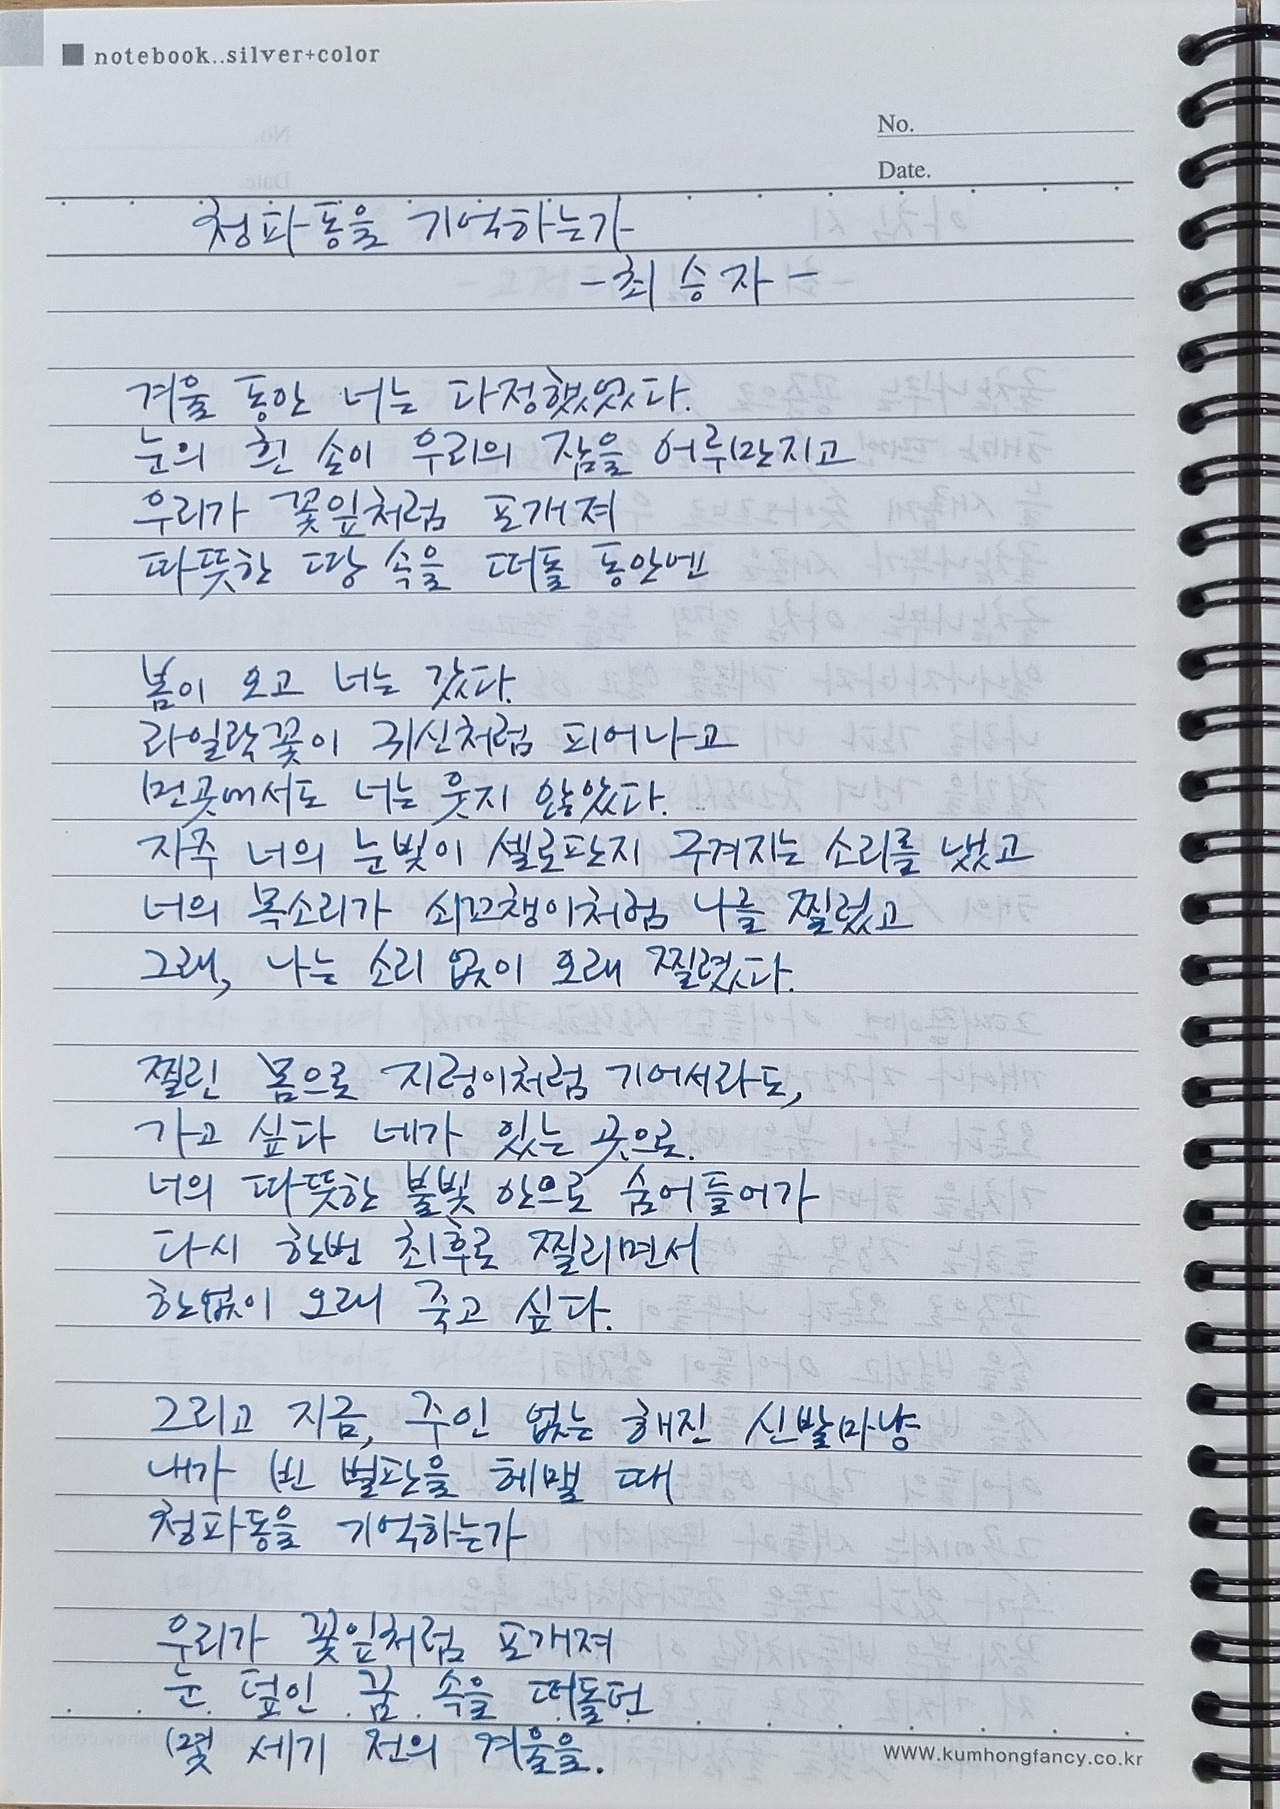 notebook..silver+color
No.
Date.
청파동을 기억하는가
-최승자-
겨울 동안 너는 다정했었다.
눈의 흰 손이 우리의 잠을 어루만지고
우리가 꽃잎처럼 포개져
따뜻한 땅 속을 떠돌 동안엔
봄이 오고 너는 갔다.
라일락꽃이 귀신처럼 피어나고
먼곳에서도 너는 웃지 않았다.
자주 너의 눈빛이 셀로판지 구겨지는 소리를 냈고
너의 목소리가 쇠꼬챙이처럼 나를 찔렀고
그래, 나는 소리 없이 오래 찔렸다.
찔린 몸으로 지렁이처럼 기어서라도,
가고 싶다 네가 있는 곳으로.
너의 따뜻한 불빛 안으로 숨어들어가
다시 한번 최후로 찔리면서
한없이 오래 죽고 싶다.
그리고 지금, 주인 없는 해진 신발마냥
내가 빈 벌판을 헤맬 때
청파동을 기억하는가
우리가 꽃잎처럼 포개져
눈 덮인 꿈 속을 떠돌던
몇 세기 전의 겨울을.
www.kumhongfancy.co.kr